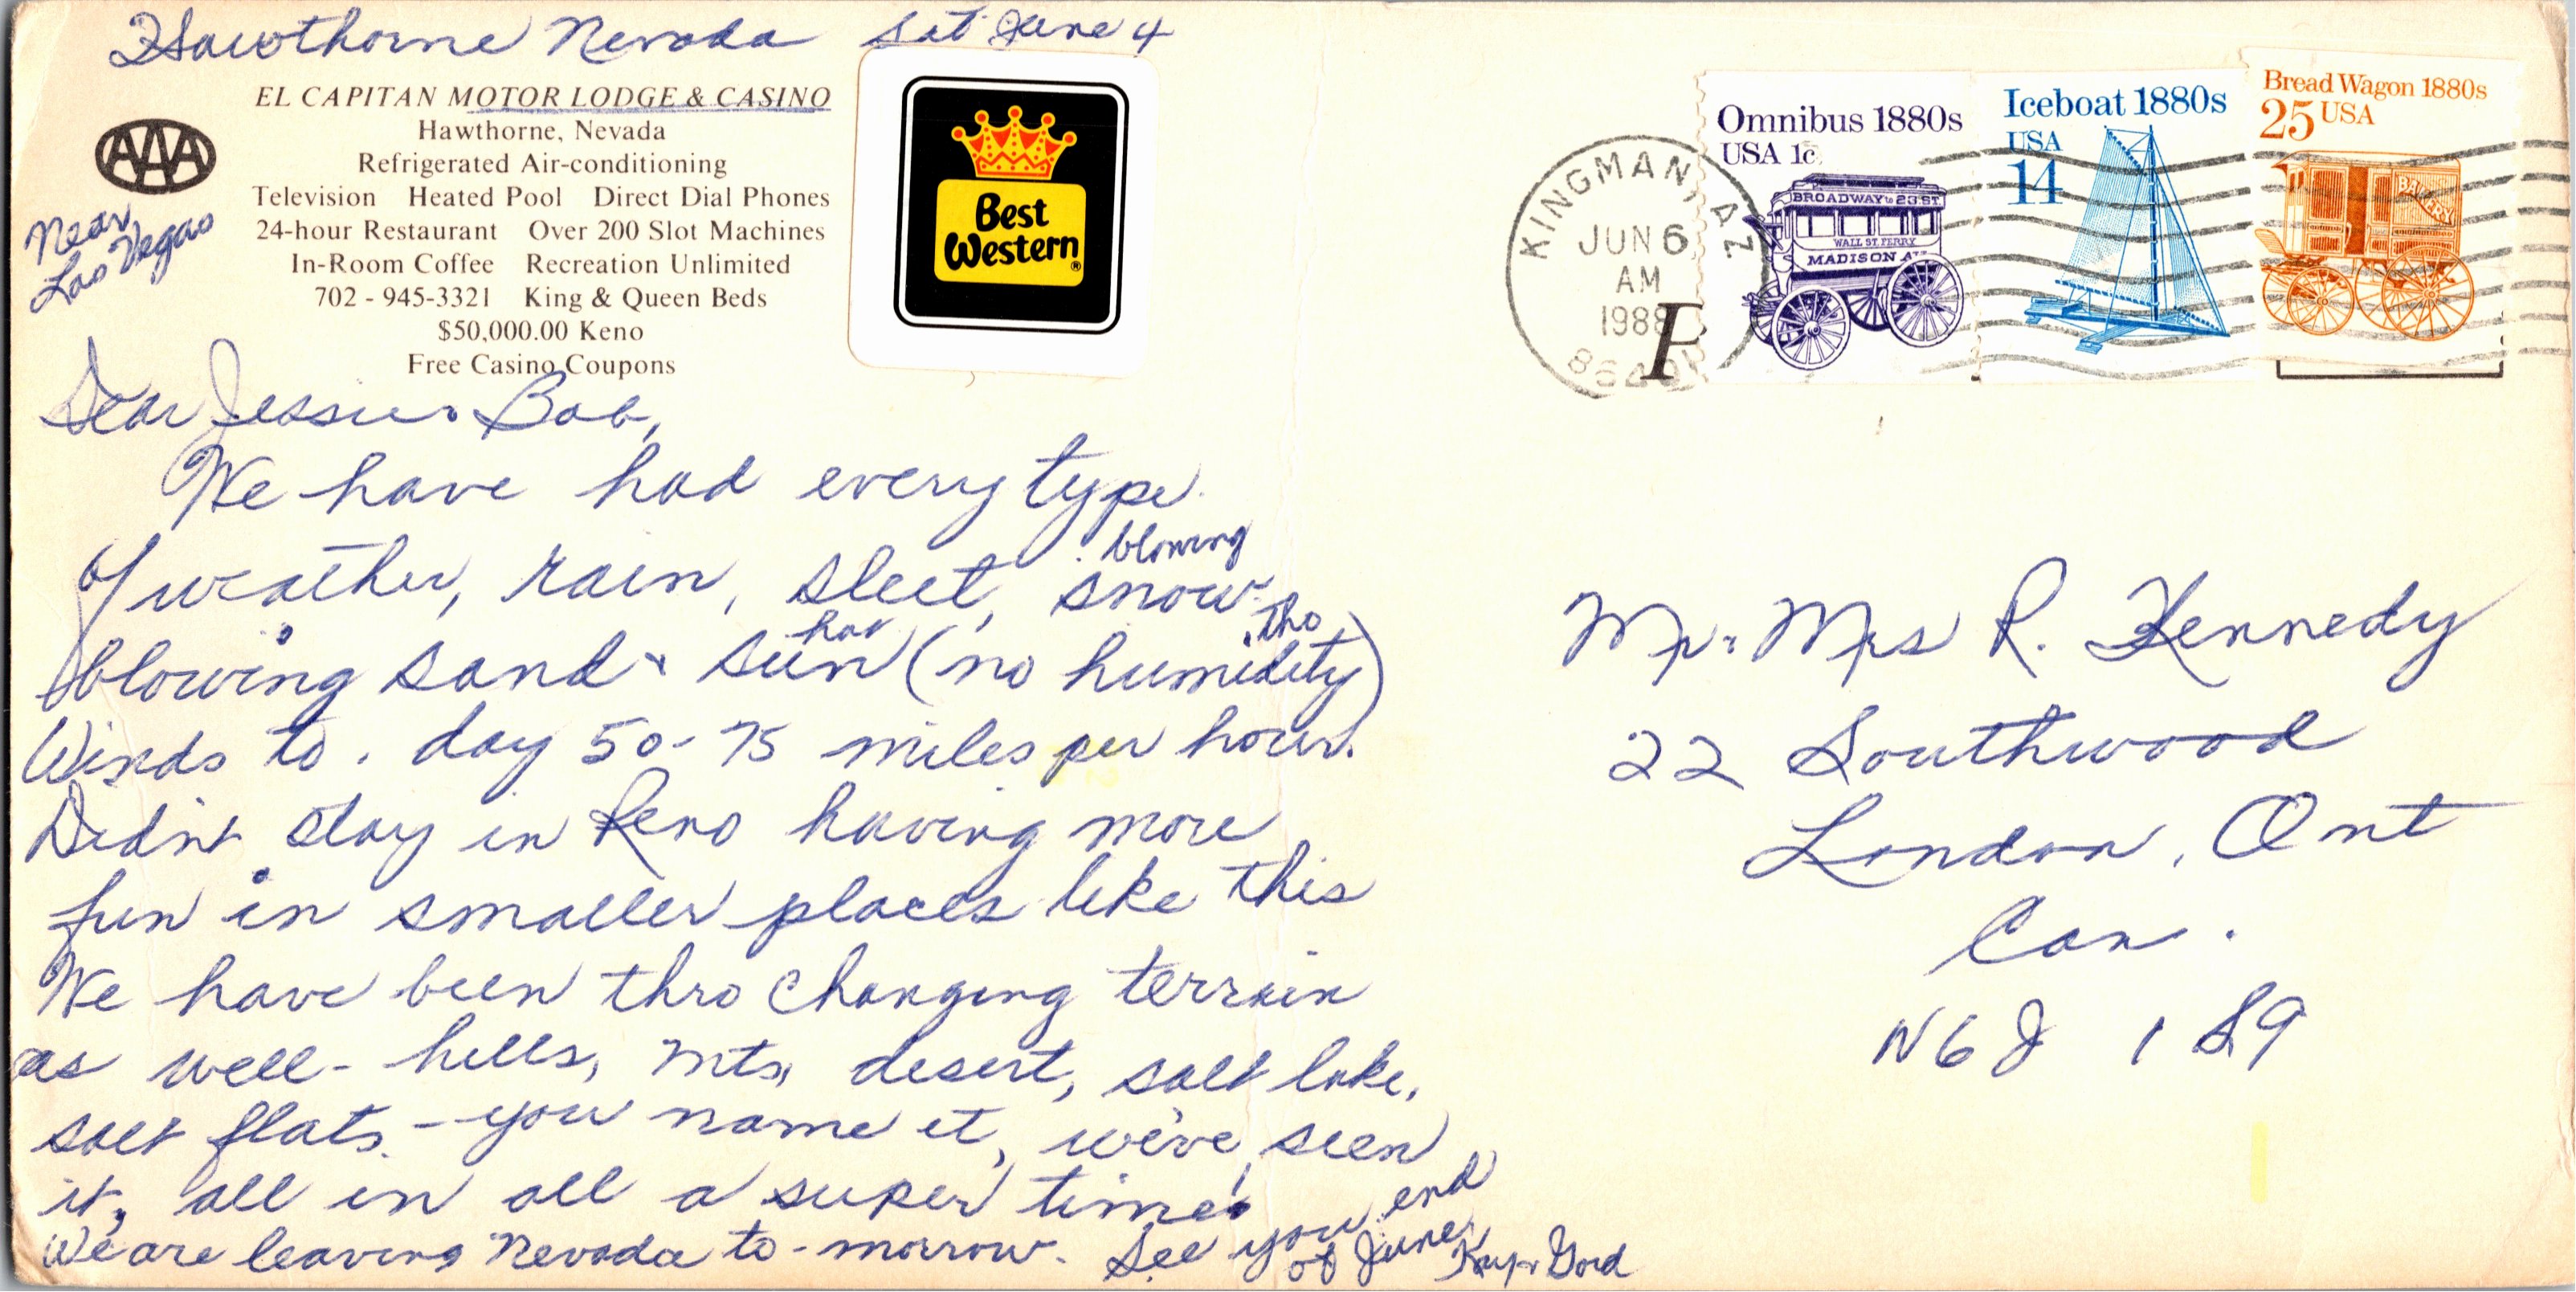 Hawthorne Nevada Sat June 4
EL CAPITAN MOTOR LODGE & CASINO
Hawthorne, Nevada
Refrigerated Air-conditioning
Television Heated Pool Direct Dial Phones
24-hour Restaurant Over 200 Slot Machines
In-Room Coffee Recreation Unlimited
702 - 945-3321 King & Queen Beds
$50,000.00 Keno
Free Casino Coupons
AAA
Near
Las Vegas
Best
Western®
Dear Jessie & Bob,
We have had every type
of weather, rain, sleet, blowing snow
blowing sand & hot sun (no humidity) tho
Winds to.day 50-75 miles per hour.
Didn't stay in Reno having more
fun in smaller places like this
We have been thro changing terrain
as well - hills, mts, desert, salt lake,
salt flats. - you name it, we've seen
it, all in all a super time!
We are leaving Nevada to-morrow. See you end
of June.
Kay & Gord
KINGMAN, AZ
JUN 6
AM
1988
86401
P
Omnibus 1880s
USA 1c
BROADWAY to 23 ST.
WALL ST. FERRY
MADISON AV
Iceboat 1880s
USA
14
Bread Wagon 1880s
25 USA
BAKERY
Mr & Mrs R. Kennedy
22 Southwood
London, Ont
Can.
N6J 1S9